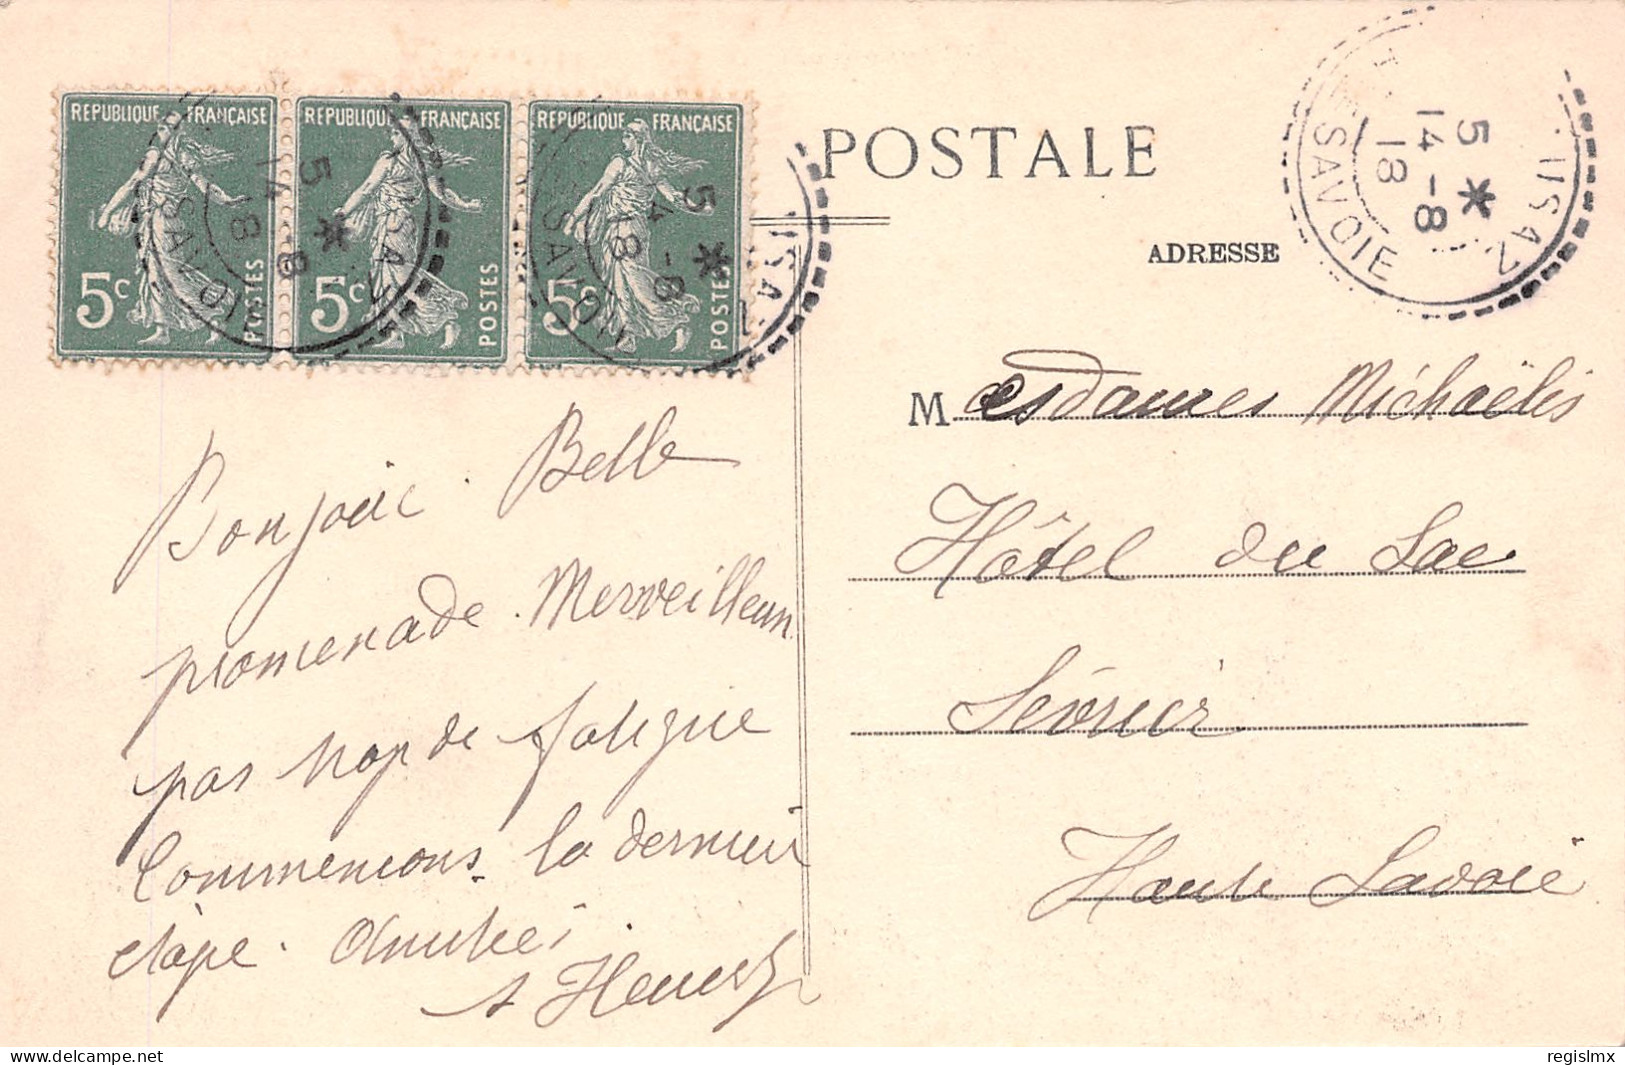 REPUBLIQUE FRANÇAISE
5c POSTES
REPUBLIQUE FRANÇAISE
5c POSTES
REPUBLIQUE FRANÇAISE
5c POSTES
5 *
14 -8
18
SAVOIE
5 *
14 -8
18
SAVOIE
5 *
14 -8
18
SAVOIE
POSTALE
ADRESSE
Mesdames Michaëlis
Hôtel du Lac
Sévrier
Haute Savoie
Bonjour. Belle
promenade. Merveilleux
pas trop de fatigue
Commençons la dernière
étape. Amitiés
delcampe.net
regislmx